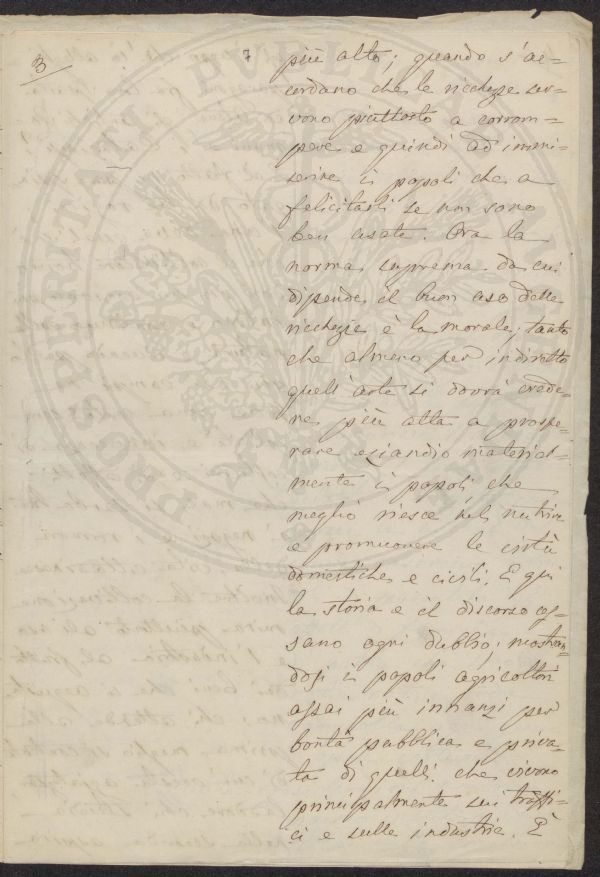 3
7
più alto; quando s'ac-
cordano che le ricchezze ser-
vono piuttosto a corrom-
pere e quindi ad immi-
serire i popoli che a
felicitarli se non sono
ben usate. Ora la
norma suprema da cui
dipende il buon uso delle
ricchezze è la morale, tanto
che almeno per indiretto
quell'arte si dovrà crede-
re più atta a prospe-
rare eziandio material-
mente i popoli che
meglio riesce nel nutrire
e promuovere le virtù
domestiche e civili. E qui
la storia e il discorso ces-
sano ogni dubbio; mostran-
dosi i popoli agricoltori
assai più innanzi per
bontà pubblica e priva-
ta di quelli che vivono
principalmente sui traffi-
ci e sulle industrie. È